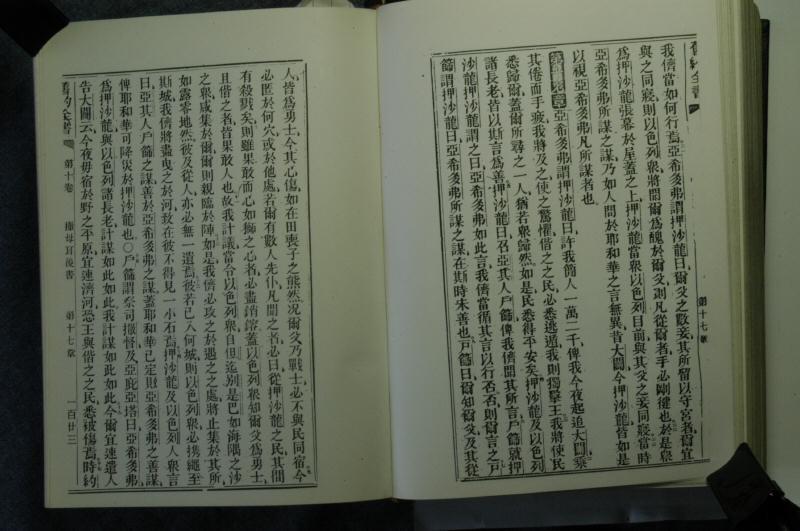 舊約全書
第十七章
我儕當如何行焉亞希多弗謂押沙龍曰爾父之數妾其所留以守宮者爾宜
與之同寢則以色列眾將聞爾爲醜於爾父則凡從爾者手必剛健也於是眾
爲押沙龍張幕於屋蓋之上押沙龍當眾以色列目前與其父之妾同寢當時
亞希多弗所謀之謀乃如人問於耶和華之言無異昔大闢今押沙龍皆如是
以視亞希多弗凡所謀者也
亞希多弗謂押沙龍曰許我簡人一萬二千俾我今夜起追大闢乘
其倦而手疲我將及之使之驚懼偕之之民必悉逃遁我則獨擊王我將使民
悉歸爾蓋爾所尋之一人猶若眾歸然如是民悉得平安矣押沙龍及以色列
諸長老皆以斯言爲善押沙龍曰召亞其人戶篩俾我儕聞其所言戶篩就押
沙龍押沙龍謂之曰亞希多弗如此言我儕當循其言以行否否則爾言之戶
篩謂押沙龍曰亞希多弗所謀之謀在斯時未善也戶篩曰爾知爾父及其從
人皆爲勇士今其心傷如在田喪子之熊然况爾父乃戰士必不與民同宿今
必匿於何穴或於他處若爾有數人先仆凡聞之者必曰從押沙龍之民其間
有殺戮矣則雖果敢而心如獅之心者必盡銷鎔蓋以色列眾知爾父爲勇士
且偕之者皆果敢人也故我計議當令以色列眾自但迄別是巴如海隅之沙
之眾咸集於爾爾則親臨於陣如是我儕必攻之於遇之之處將止集於其所
如露零地然彼及從人亦必無一遺焉彼若已入何城則以色列眾必携繩至
斯城我儕將盡曳之於河致在彼不得見一小石焉押沙龍及以色列人眾言
曰亞其人戶篩之謀善於亞希多弗之謀蓋耶和華已定敗亞希多弗之善謀
俾耶和華可降災於押沙龍也○戶篩謂祭司撒督及亞庇亞塔曰亞希多弗
爲押沙龍與以色列諸長老計謀如此如此我計謀如此如此今爾宜速遣人
告大闢云今夜毋宿於野之平原宜速濟河恐王與偕之之民悉被傷焉時約
舊約全書
第十卷
撒母耳後書
第十七章
一百廿三